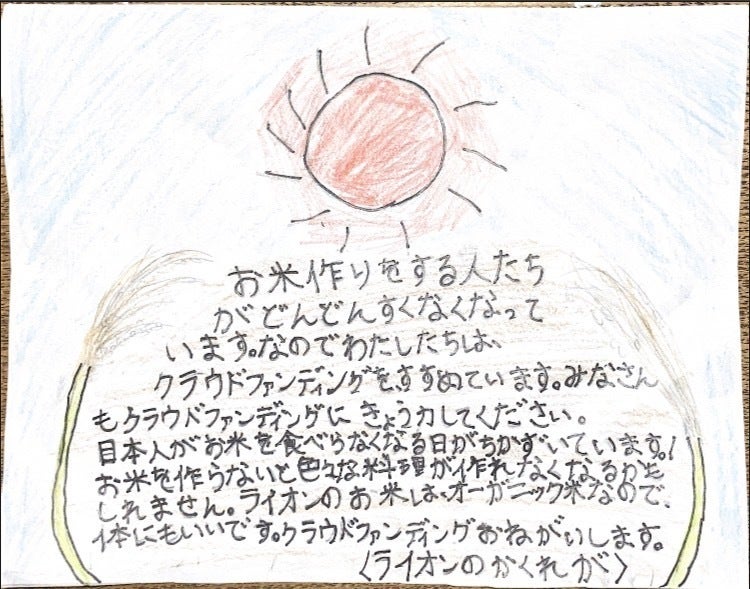 お米作りをする人たち
がどんどんすくなくなって
います。なのでわたしたちは、
クラウドファンディングをすすめています。みなさん
もクラウドファンディングにきょう力してください。
日本人がお米を食べらなくなる日がちかずいています。!
お米を作らないと色々な料理が作れなくなるかも
しれません。ライオンのお米は、オーガニック米なので、
体にもいいです。クラウドファンディングおねがいします。
〈ライオンのかくれが〉